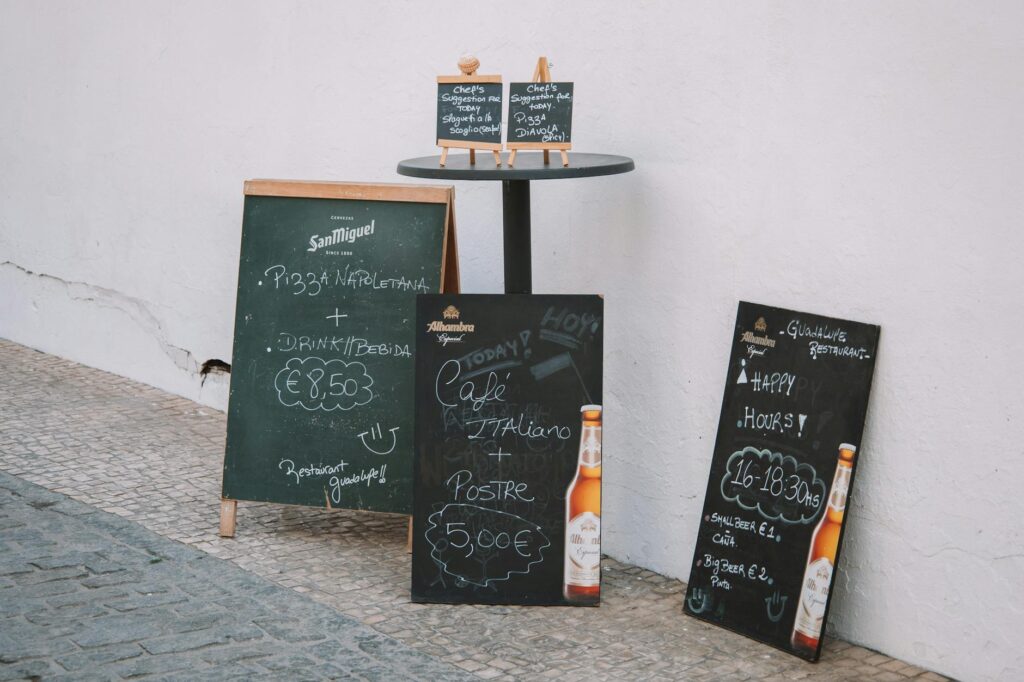 Chef's
Suggestion for
TODAY
a la
scoglio (seafood)
Chef's
Suggestion for
TODAY.
Pizza
DiAVOLA
(spicy).
CERVEZAS
SanMiguel
SINCE 1890
. Pizza NAPOLETANA
+
. DRINK//BEBIDA
€8,50
Restaurant
Guadalupe!!
Alhambra
Especial
HOY!
TODAY!
Café
ITALIANO
+
POSTRE
5,00€
Alhambra
Especial
Alhambra
Especial
- GUADALUPE
RESTAURANT -
HAPPY
HOURS!
16-18:30HS
SMALL BEER €1
CAÑA.
BIG BEER €2
Pinta.